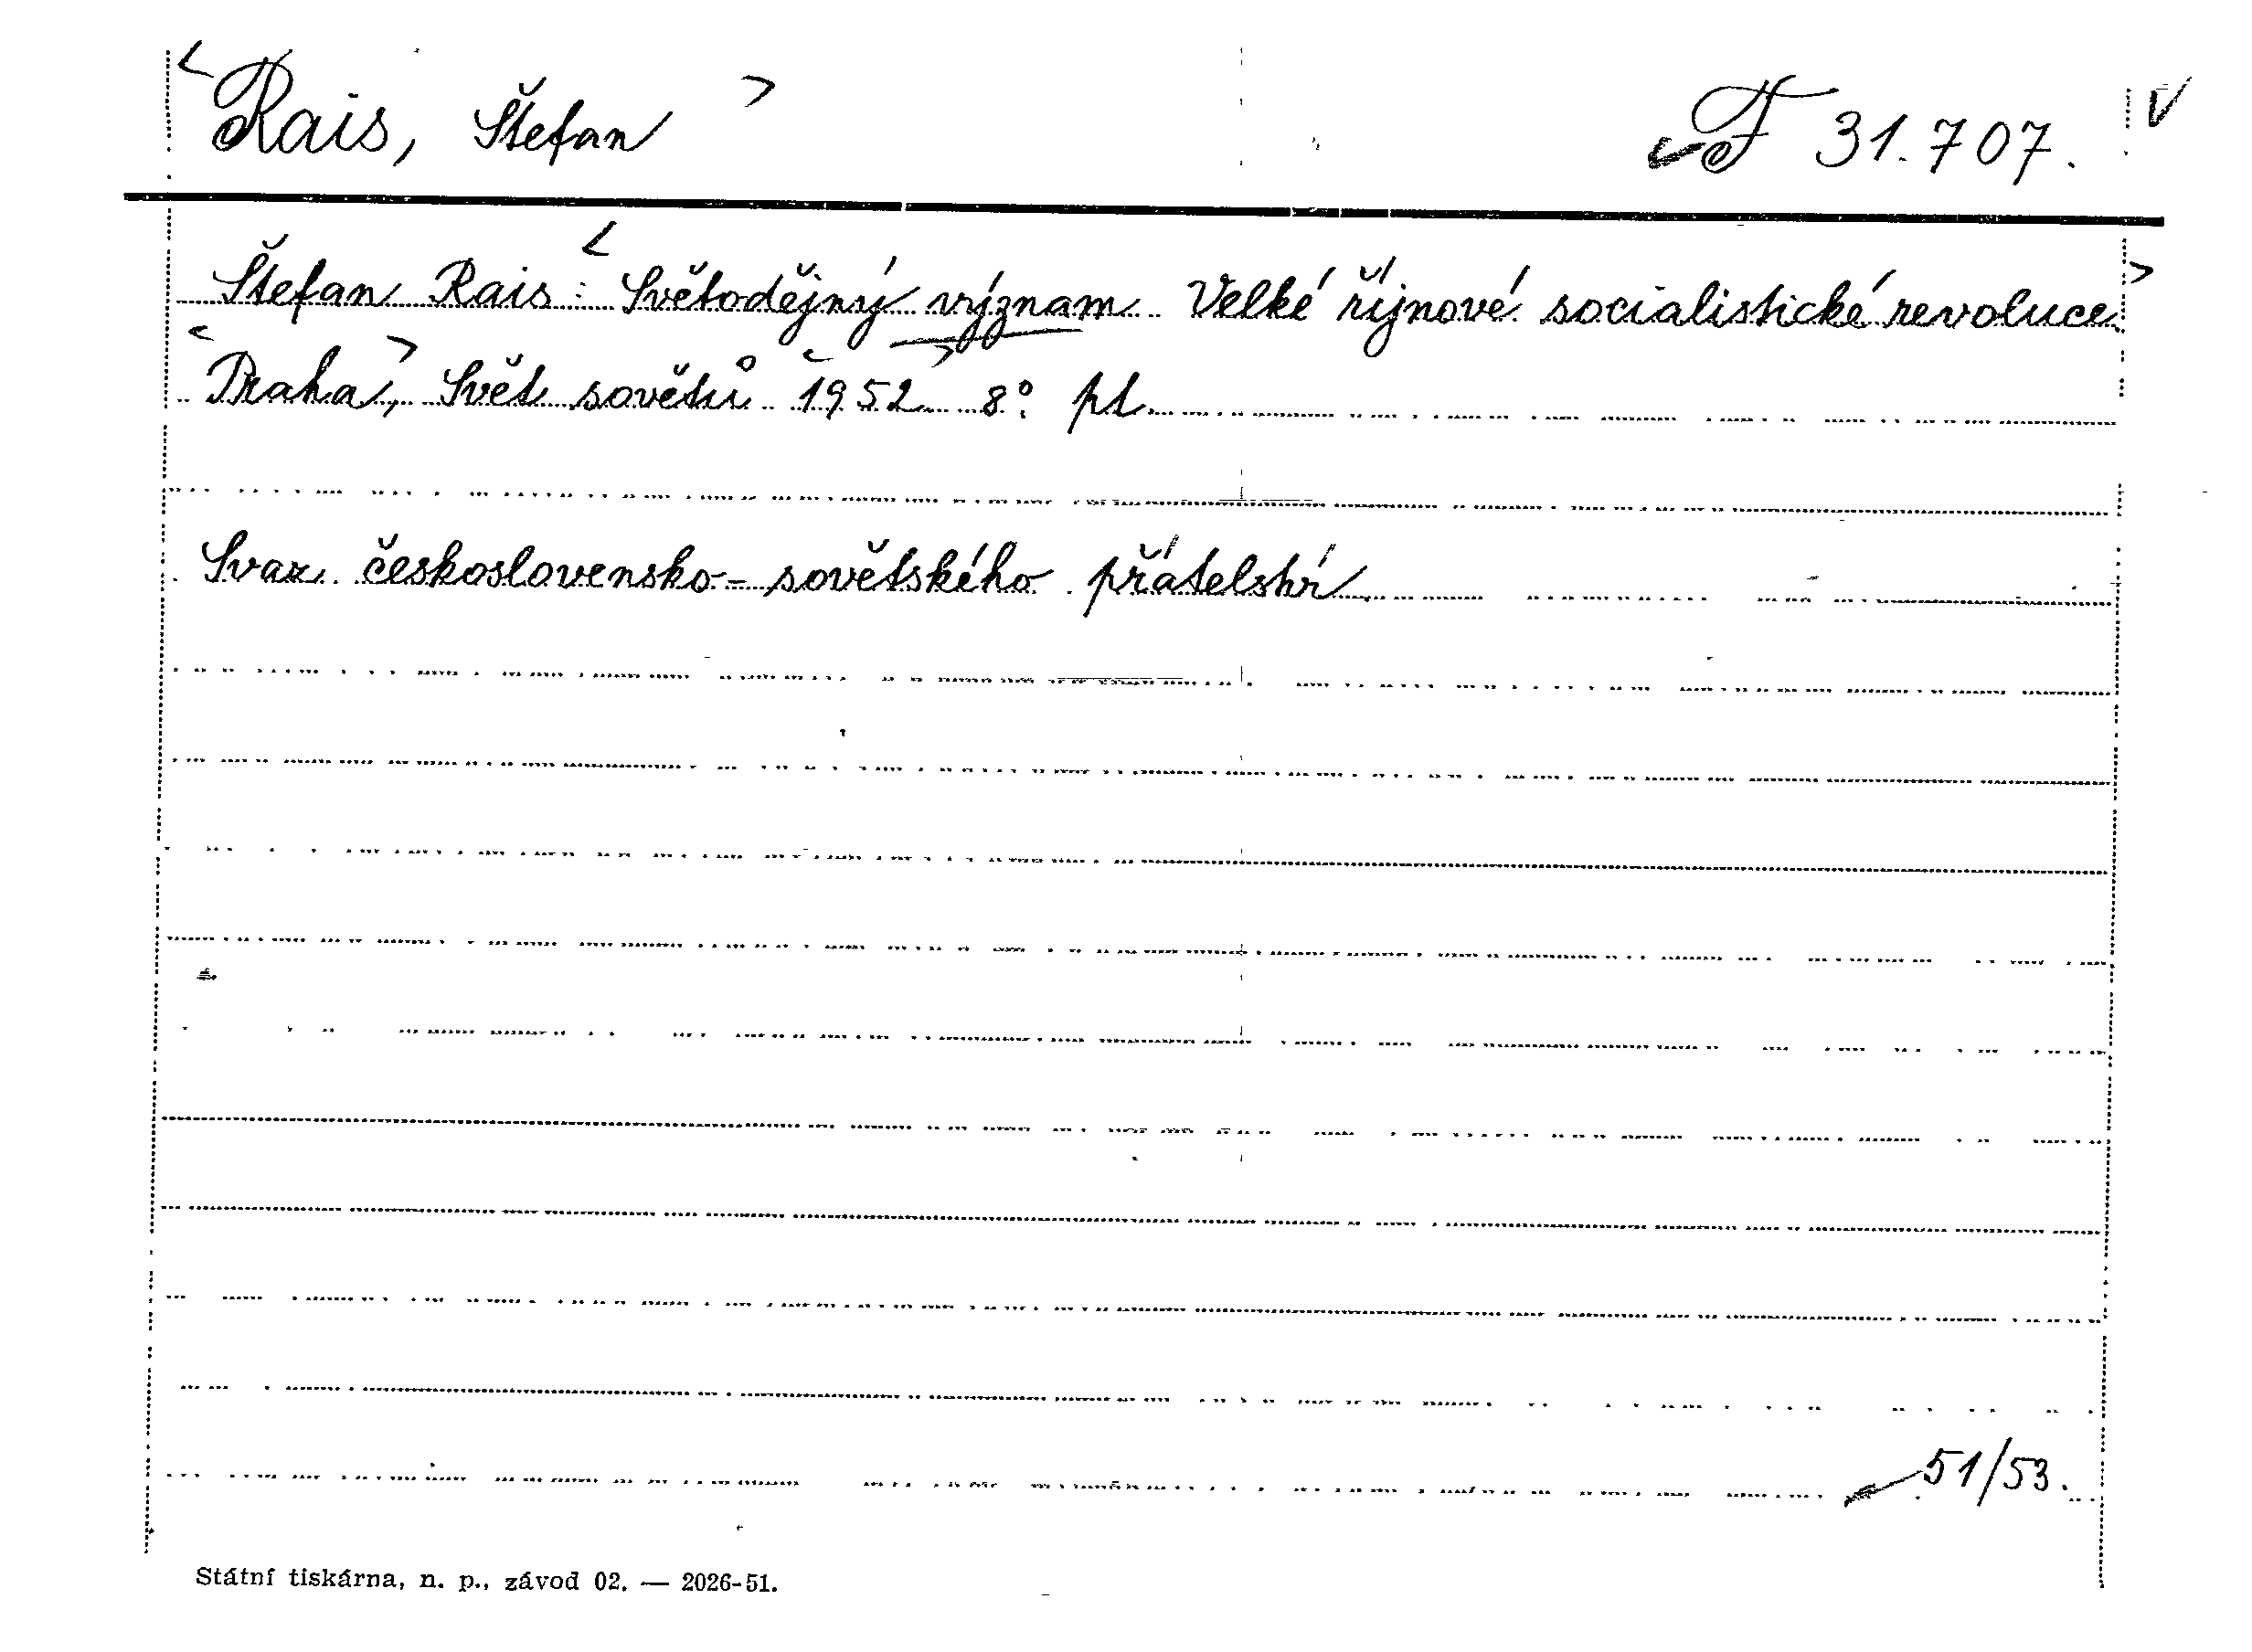 < Rais, Štefan > F 31.707. V
Štefan Rais: < Světodějný význam Velké říjnové socialistické revoluce. >
< Praha, > Svět sovětů < 1952 > 8° pt.
Svaz československo-sovětského přátelství
51/53.
Státní tiskárna, n. p., závod 02. — 2026-51.